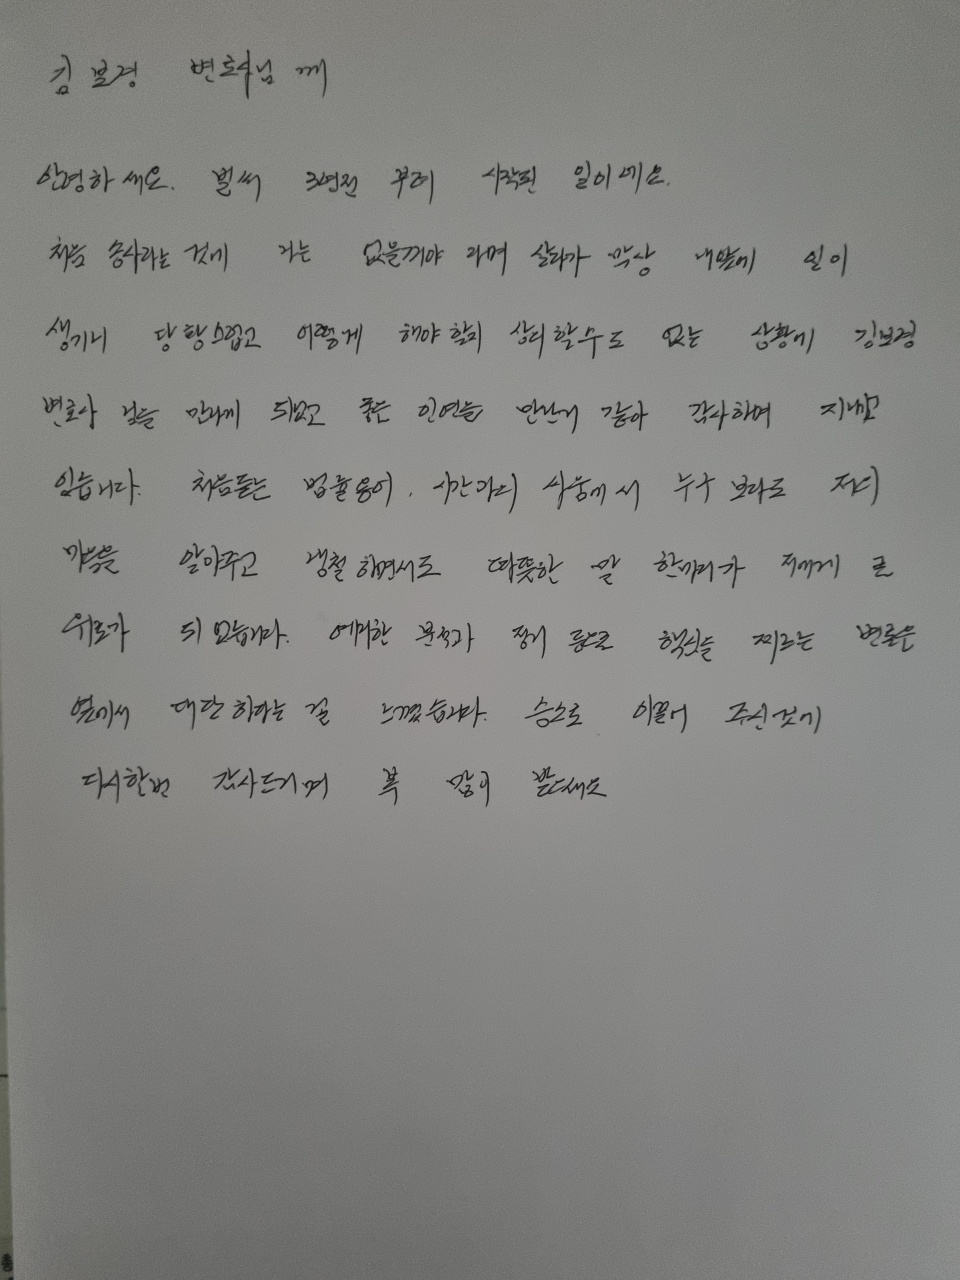 김보경 변호사님께
안녕하세요. 벌써 3년전 부터 시작된 일이네요.
처음 송사라는 것에 나는 없을꺼야 라며 살다가 막상 내앞에 일이
생기니 당황스럽고 어떻게 해야 할지 상의할수도 없는 상황에 김보경
변호사 님을 만나게 되었고 좋은 인연을 만난거 같아 감사하며 지내고
있습니다. 처음듣는 법률용어, 시간과의 싸움에서 누구 보다도 저의
마음을 알아주고 냉철하면서도 따뜻한 말 한마디가 저에게 큰
위로가 되었습니다. 예리한 분석과 정리 등으로 핵심을 찌르는 변론은
옆에서 대단하다는 걸 느꼈습니다. 승소로 이끌어 주신것에
다시한번 감사드리며 복 많이 받으세요